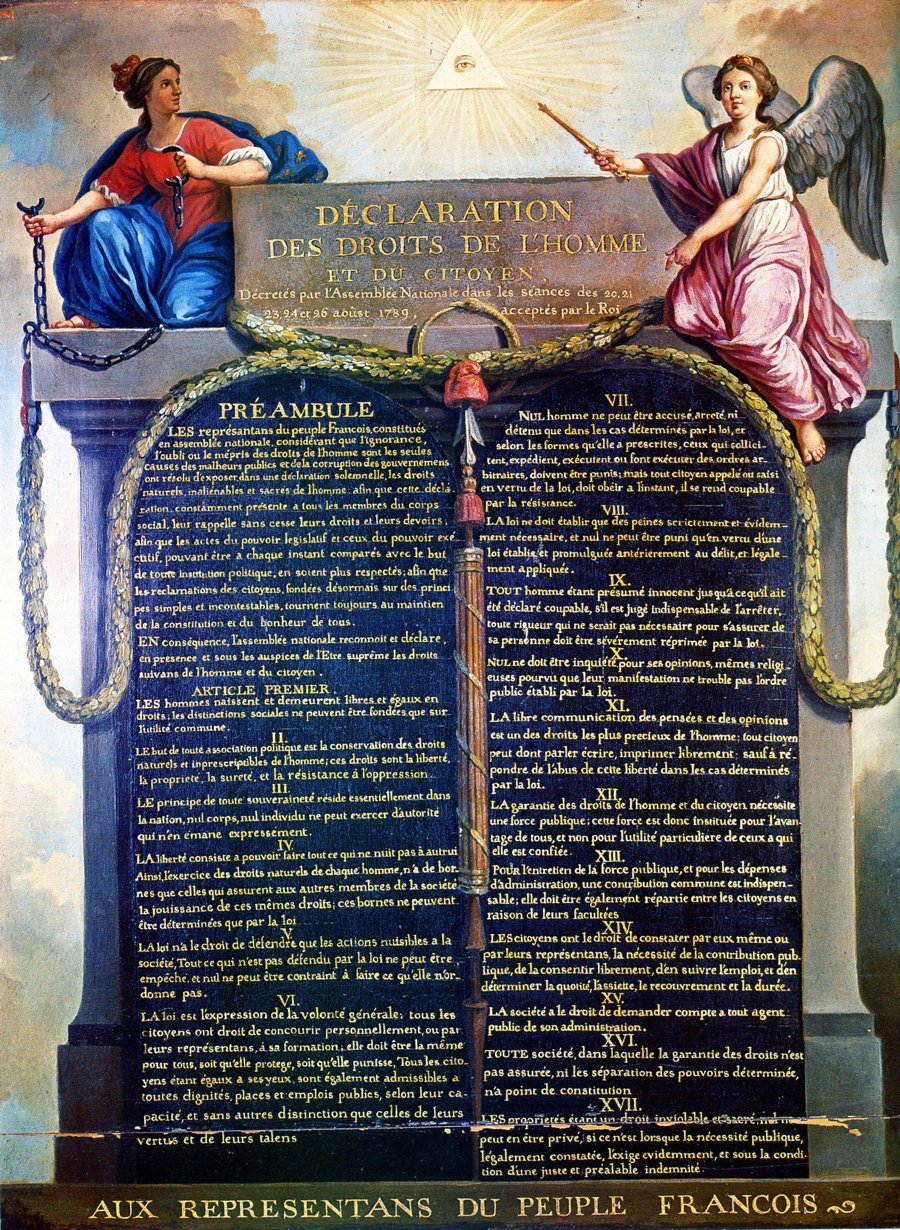 DÉCLARATION
DES DROITS DE L'HOMME
ET DU CITOYEN
Décretés par l'Assemblée Nationale dans les séances des 20. 21
23. 24 et 26 août 1789, acceptés par le Roi
PRÉAMBULE
LES représantans du peuple Francois, constitués
en assemblée nationale, considérant que l'ignorance,
l'oubli ou le mépris des droits de l'homme sont les seules
causes des malheurs publics et de la corruption des gouvernemens
ont résolu d'exposer, dans une déclaration solemnelle, les droits
naturels, inaliénables et sacrés de l'homme: afin que cette décla
ration, constamment présente a tous les membres du corps
social, leur rappelle sans cesse leurs droits et leurs devoirs;
afin que les actes du pouvoir legislatif et ceux du pouvoir exé
cutif, pouvant être a chaque instant comparés avec le but
de toute institution politique, en soient plus respectés; afin que
les reclamations des citoyens, fondées désormais sur des princi
pes simples et incontestables, tournent toujours au maintien
de la constitution et du bonheur de tous.
EN conséquence, l'assemblée nationale reconnoit et déclare,
en presence et sous les auspices de l'Etre suprême les droits
suivans de l'homme et du citoyen.
ARTICLE PREMIER.
LES hommes naissent et demeurent libres et égaux en
droits; les distinctions sociales ne peuvent être fondées que sur
l'utilité commune.
II.
LE but de toute association politique est la conservation des droits
naturels et inprescriptibles de l'homme; ces droits sont la liberté,
la propriété, la sureté, et la résistance à l'oppression.
III.
LE principe de toute souveraineté réside essentiellement dans
la nation, nul corps, nul individu ne peut exercer d'autorité
qui n'en émane expressément.
IV.
LA liberté consiste a pouvoir faire tout ce qui ne nuit pas à autrui
Ainsi, l'exercice des droits naturels de chaque homme, n'a de bor-
nes que celles qui assurent aux autres membres de la société
la jouissance de ces mêmes droits; ces bornes ne peuvent
être déterminées que par la loi
V.
LA loi n'a le droit de défendre que les actions nuisibles a la
société, Tout ce qui n'est pas défendu par la loi ne peut être
empêché, et nul ne peut être contraint à faire ce qu'elle n'or-
donne pas.
VI.
LA loi est l'expression de la volonté générale; tous les
citoyens ont droit de concourir personnellement, ou par
leurs représentans, à sa formation; elle doit être la même
pour tous, soit qu'elle protege, soit qu'elle punisse, Tous les cito-
yens étant égaux a ses yeux, sont également admissibles a
toutes dignités, places et emplois publics, selon leur ca-
pacité, et sans autres distinction que celles de leurs
vertus et de leurs talens
VII.
NUL homme ne peut être accusé, arreté, ni
détenu que dans les cas déterminés par la loi, et
selon les formes qu'elle a prescrites, ceux qui sollici-
tent, expédient, exécutent ou font exécuter des ordres ar-
bitraires, doivent être punis; mais tout citoyen appelé ou saisi
en vertu de la loi, doit obéir a l'instant, il se rend coupable
par la résistance.
VIII.
LA loi ne doit établir que des peines strictement et évidem-
ment nécessaire, et nul ne peut être puni qu'en vertu d'une
loi établie et promulguée antérierement au délit, et légale-
ment appliquée.
IX.
TOUT homme étant présumé innocent jusqu'à ce qu'il ait
été déclaré coupable, s'il est jugé indispensable de l'arrêter,
toute rigueur qui ne serait pas nécessaire pour s'assurer de
sa personne doit être sévèrement réprimée par la loi.
X.
NUL ne doit être inquiété pour ses opinions, mêmes religi-
euses pourvu que leur manifestation ne trouble pas l'ordre
public établi par la loi.
XI.
LA libre communication des pensées et des opinions
est un des droits les plus precieux de l'homme; tout citoyen
peut dont parler écrire, imprimer librement: sauf à ré-
pondre de l'abus de cette liberté dans les cas déterminés
par la loi.
XII.
LA garantie des droits de l'homme et du citoyen nécessite
une force publique; cette force est donc instituée pour l'avan-
tage de tous, et non pour l'utilité particuliere de ceux a qui
elle est confiée.
XIII.
POUR l'entretien de la force publique, et pour les dépenses
d'administration, une contribution commune est indispen-
sable; elle doit être également répartie entre les citoyens en
raison de leurs facultées
XIV.
LES citoyens ont le droit de constater par eux même ou
par leurs représentans, la nécessité de la contribution pub-
lique, de la consentir librement, d'en suivre l'emploi, et d'en
déterminer la quotité, l'assiette, le recouvrement et la durée.
XV.
LA société a le droit de demander compte a tout agent
public de son administration.
XVI.
TOUTE société, dans laquelle la garantie des droits n'est
pas assurée, ni les séparation des pouvoirs déterminée,
n'a point de constitution
XVII.
LES proprietés étant un droit inviolable et sacré, nul ne
peut en être privé, si ce n'est lorsque la nécessité publique,
légalement constatée, l'exige evidemment, et sous la condi-
tion d'une juste et préalable indemnité.
AUX REPRESENTANS DU PEUPLE FRANCOIS